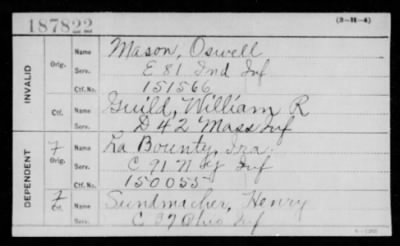 187822
(3-H-4)
INVALID
Orig.
Name Mason, Oswell
Serv. E 81 Ind Inf
Ctf. No. 151566
Ctf.
Name Guild, William R
Serv. D 42 Mass Inf
DEPENDENT
Orig.
Name La Bounty, Ira
Serv. C 91 N Y Inf
Ctf. No. 150055
Ctf.
Name Sundmacher, Henry
Serv. C 37 Ohio Inf